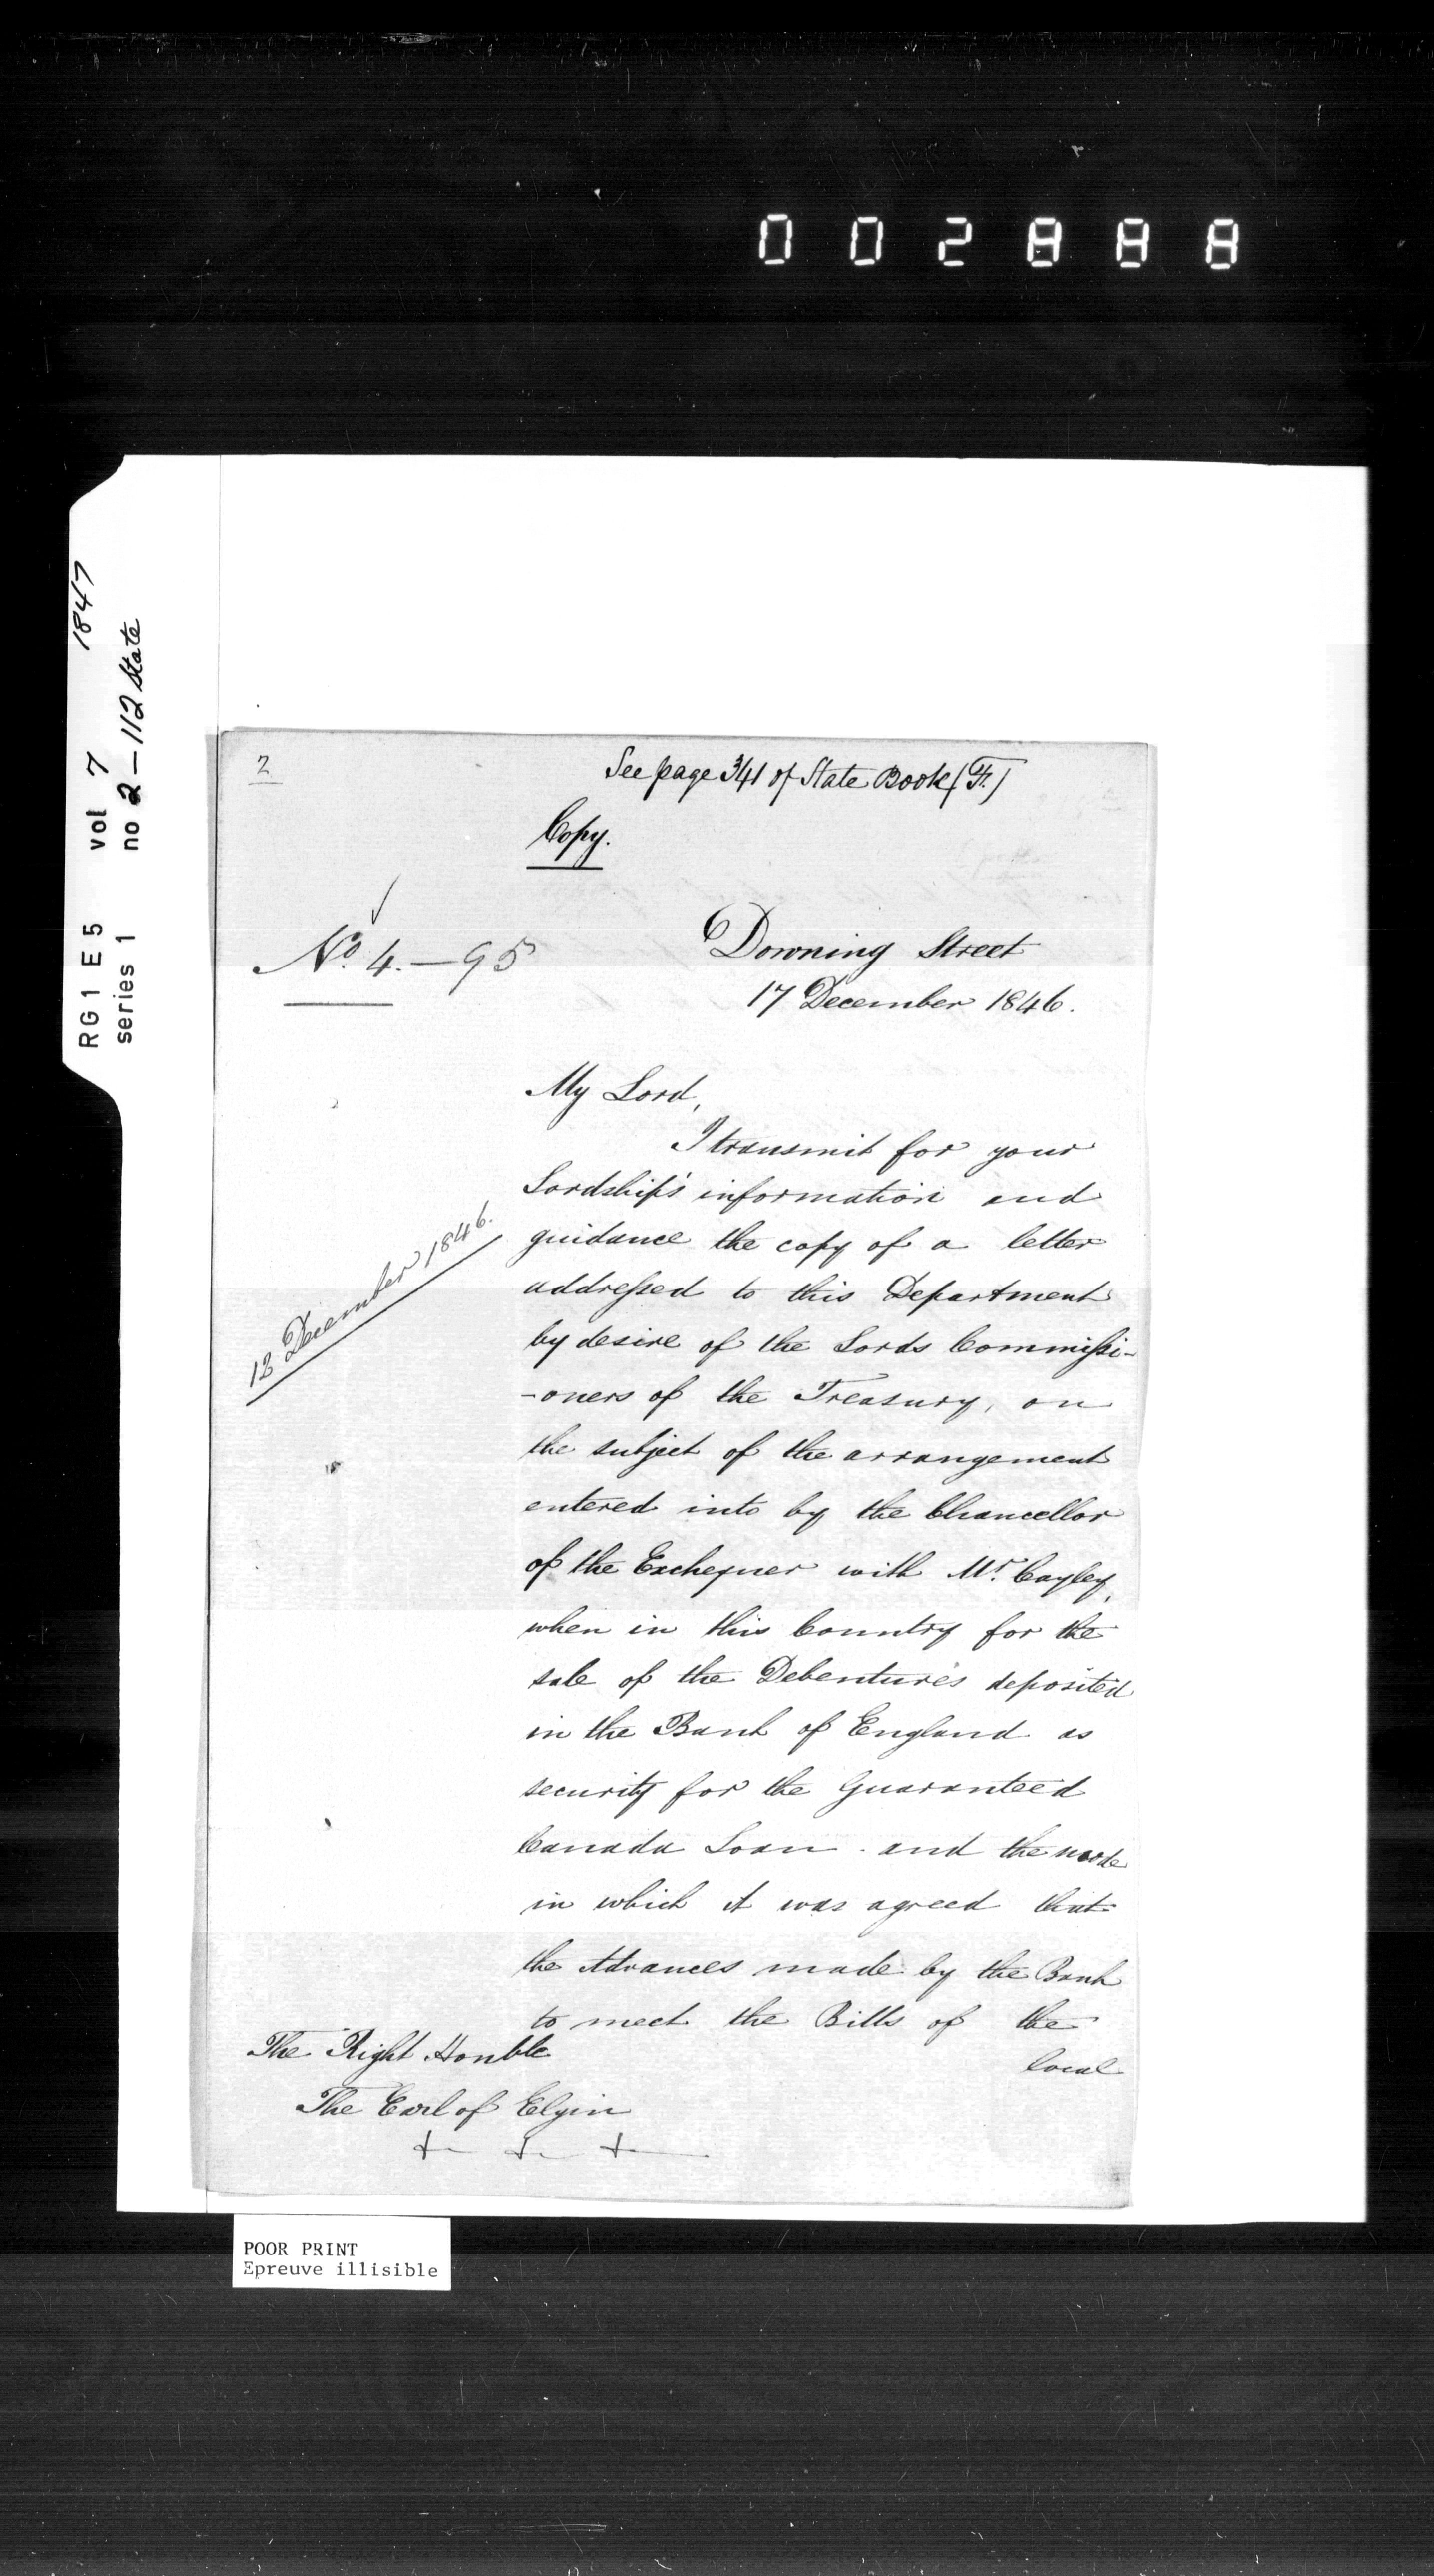 002888
RG 1 E 5 vol 7 1847
series 1 no 2-112 State
2
See page 341 of State Book (F.)
Copy.
No. 4. — 95
Downing Street
17 December 1846.
My Lord,
I transmit for your
Lordship's information and
guidance the copy of a letter
12 December 1846.
addressed to this Department
by desire of the Lords Commissi-
-oners of the Treasury, on
the subject of the arrangement
entered into by the Chancellor
of the Exchequer with Mr. Cayley,
when in this Country for the
sale of the Debentures deposited
in the Bank of England as
security for the Guaranteed
Canada Loan. and the mode
in which it was agreed that
the Advances made by the Bank
to meet the Bills of the
local
The Right Honble
The Earl of Elgin
POOR PRINT
Epreuve illisible